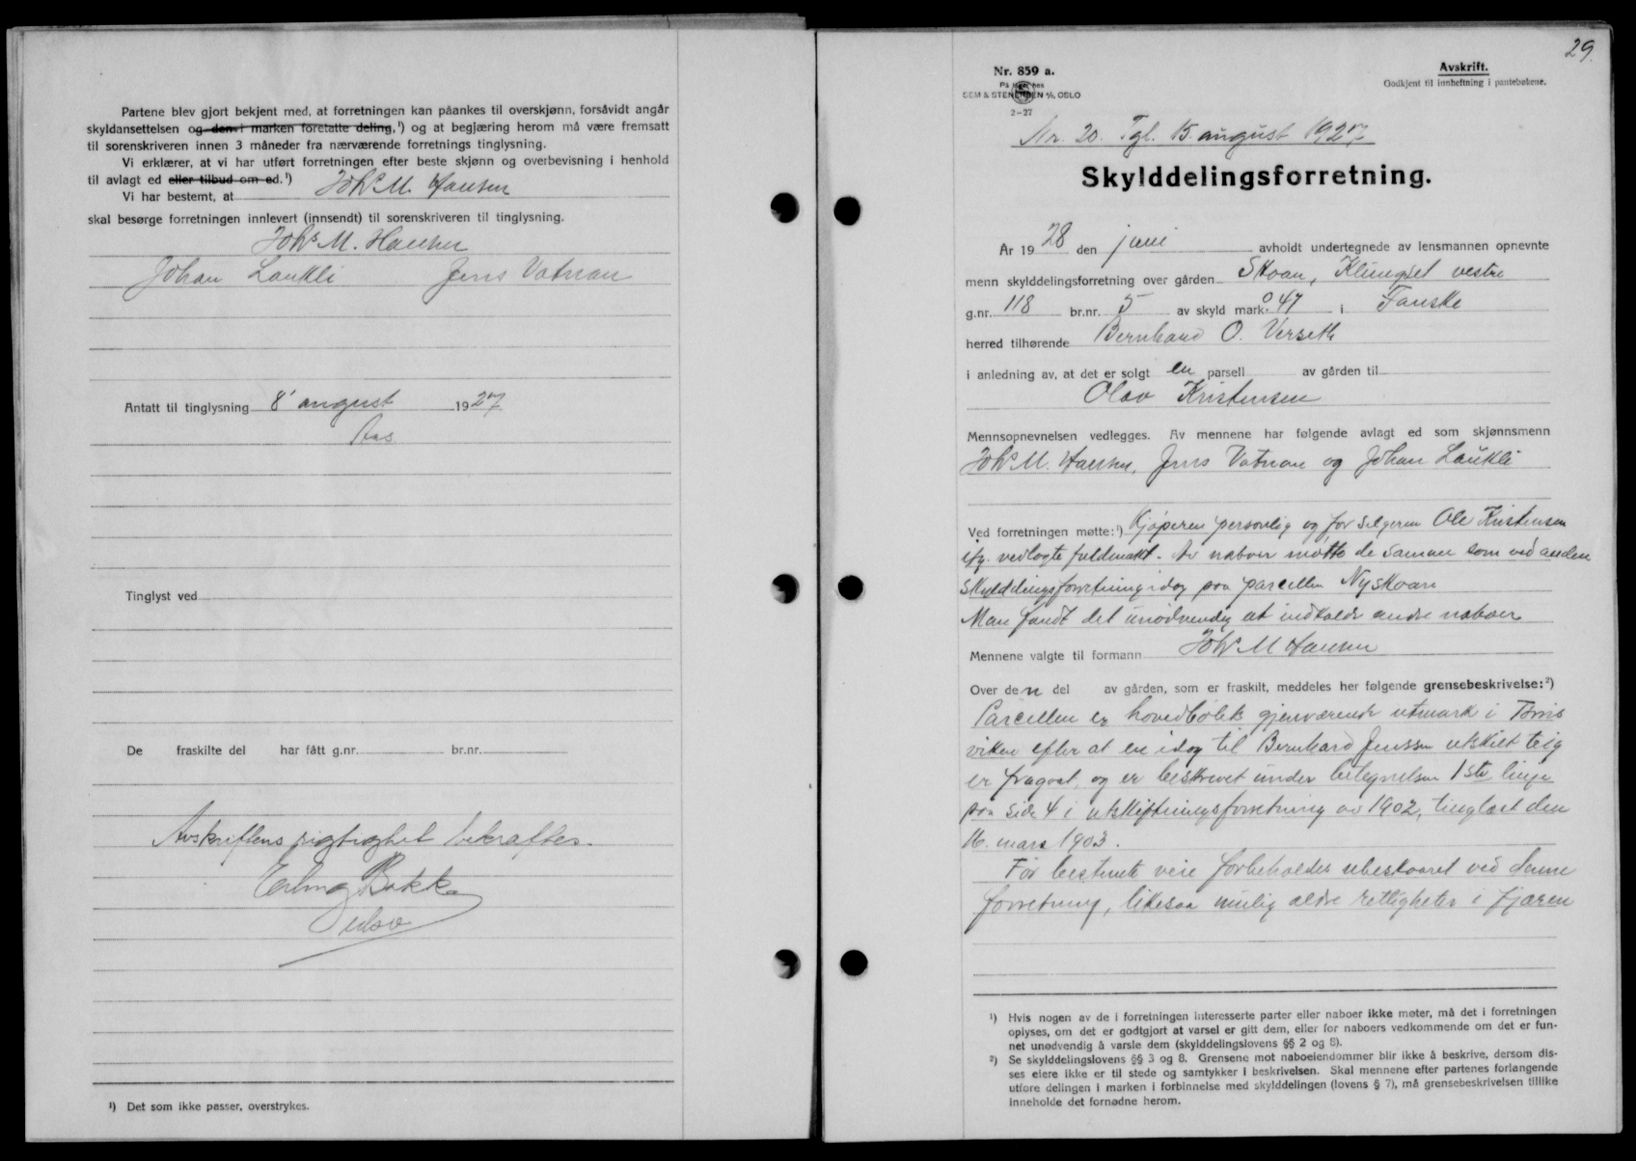 Partene blev gjort bekjent med, at forretningen kan påankes til overskjønn, forsåvidt angår
skyldansettelsen og den i marken foretatte deling,¹) og at begjæring herom må være fremsatt
til sorenskriveren innen 3 måneder fra nærværende forretnings tinglysning.
Vi erklærer, at vi har utført forretningen efter beste skjønn og overbevisning i henhold
til avlagt ed eller tilbud om ed.¹)
Vi har bestemt, at Johs M. Hansen
skal besørge forretningen innlevert (innsendt) til sorenskriveren til tinglysning.
Johs M. Hansen
Johan Laukli Jens Vatnan
Antatt til tinglysning 8' august 1927
Aas
Tinglyst ved
De fraskilte del har fått g.nr. br.nr.
Avskriftens rigtighet bekræftes.
Erling Bakke
¹) Det som ikke passer, overstrykes.
29.
Nr. 859 a.
På lager hos
SEM & STENERSEN A/S, OSLO
2-27
Avskrift.
Godkjent til innheftning i pantebøkene.
Nr. 20. Tgl. 15. august 1927
Skylddelingsforretning.
År 1928 den juni avholdt undertegnede av lensmannen opnevnte
menn skylddelingsforretning over gården Skoan, Klungset vestre
g.nr. 118 br.nr. 5 av skyld mark 0.47 i Fauske
herred tilhørende Bernhard O. Verseth
i anledning av, at det er solgt en parsell av gården til
Olav Kristensen
Mennsopnevnelsen vedlegges. Av mennene har følgende avlagt ed som skjønnsmenn
Johs M. Hansen, Jens Vatnan og Johan Laukli
Ved forretningen møtte:¹) Kjøperen personlig og for selgeren Ole Kristensen
ifg. vedlagte fuldmakt. Av naboer møtte de samme som ved anden
skylddelingsforretning idag paa parcellen Nyskoan
Man fandt det unødvendig at indkalde andre naboer
Mennene valgte til formann Johs M Hansen
Over den del av gården, som er fraskilt, meddeles her følgende grensebeskrivelse:²)
Parcellen er hovedbølets gjenværende utmark i
viken efter at en idag til Bernhard Jenssen utskilt teig
er fragaat, og er beskrevet under betegnelsen 1ste linje
paa side 4 i utskiftningsforretning av 1902, tinglæst den
16. mars 1903.
For bestemte veie forbeholdes ubeskaaret ved denne
forretning, likesaa mulig ældre rettigheter i fjæren
¹) Hvis nogen av de i forretningen interesserte parter eller naboer ikke møter, må det i forretningen
oplyses, om det er godtgjort at varsel er gitt dem, eller for naboers vedkommende om det er fun-
net unødvendig å varsle dem (skylddelingslovens §§ 2 og 8).
²) Se skylddelingslovens §§ 3 og 8. Grensene mot naboeiendommer blir ikke å beskrive, dersom dis-
ses eiere ikke er til stede og samtykker i beskrivelsen. Skal mennene efter partenes forlangende
utføre delingen i marken i forbinnelse med skylddelingen (lovens § 7), må grensebeskrivelsen tillike
inneholde det fornødne herom.